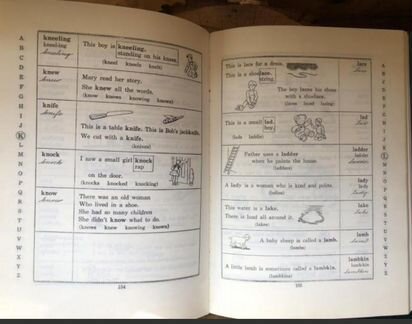 A
B
C
D
E
F
G
H
I
J
K
L
M
N
O
P
Q
R
S
T
U
V
W
X
Y
Z
kneeling
kneeling
kneeling
This boy is kneeling,
standing on his knees.
(kneel kneels knelt)
knew
knew
Mary read her story.
She knew all the words.
(know knows knowing known)
knife
knife
This is a table knife. This is Bob's jackknife.
We cut with a knife.
(knives)
knock
knock
I saw a small girl knock
rap
on the door.
(knocks knocked knocking)
know
know
There was an old woman
Who lived in a shoe.
She had so many children
She didn't know what to do.
(knows knew knowing known)
104
This is lace for a dress.
This is a shoelace.
string.
The boy laces his shoe
with a shoelace.
(laces laced lacing)
lace
lace
This is a small lad.
boy.
(lads laddie)
lad
lad
Father uses a ladder
when he paints the house.
(ladders)
ladder
ladder
ladder
A lady is a woman who is kind and polite.
(ladies)
lady
lady
lady
This water is a lake.
There is land all around it.
(lakes)
lake
lake
A baby sheep is called a lamb.
(lambs)
lamb
lamb
lamb
A little lamb is sometimes called a lambkin.
(lambkins)
lambkin
lambkin
lambkin
105
A
B
C
D
E
F
G
H
I
J
K
L
M
N
O
P
Q
R
S
T
U
V
W
X
Y
Z